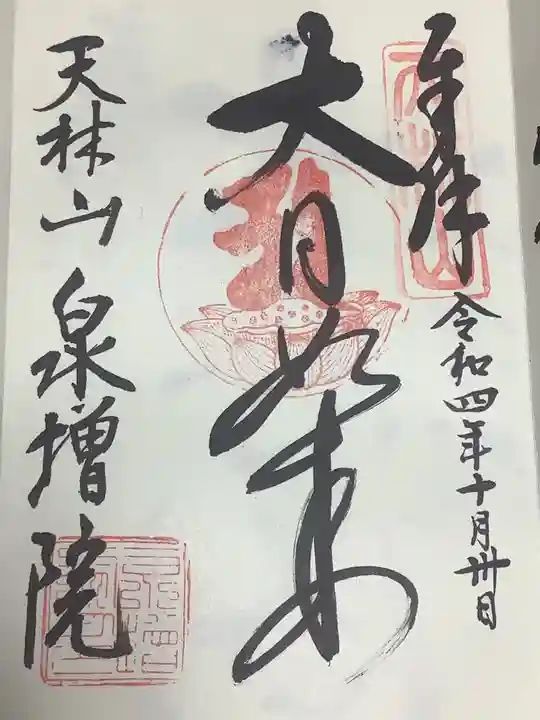 奉拝
令和四年十月卅日
大日如来
天林山 泉増院